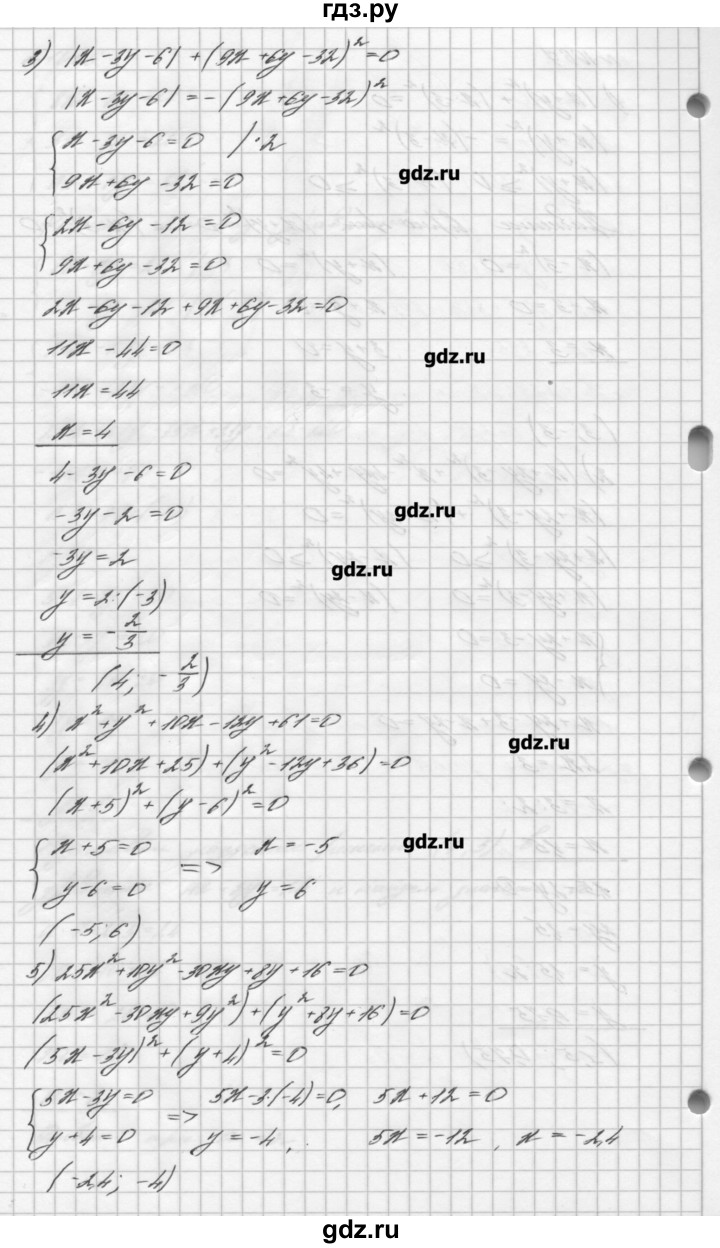 гдз.ру
3) |x - 3y - 6| + (9x + 6y - 32)² = 0
|x - 3y - 6| = - (9x + 6y - 32)²
{ x - 3y - 6 = 0 | · 2
9x + 6y - 32 = 0
gdz.ru
{ 2x - 6y - 12 = 0
9x + 6y - 32 = 0
2x - 6y - 12 + 9x + 6y - 32 = 0
11x - 44 = 0
gdz.ru
11x = 44
x = 4
4 - 3y - 6 = 0
-3y - 2 = 0
gdz.ru
-3y = 2
gdz.ru
y = 2 : (-3)
y = - 2/3
(4; - 2/3)
4) x² + y² + 10x - 12y + 61 = 0
gdz.ru
(x² + 10x + 25) + (y² - 12y + 36) = 0
(x + 5)² + (y - 6)² = 0
{ x + 5 = 0 => x = -5
gdz.ru
y - 6 = 0 y = 6
(-5; 6)
5) 25x² + 10y² - 30xy + 8y + 16 = 0
(25x² - 30xy + 9y²) + (y² + 8y + 16) = 0
(5x - 3y)² + (y + 4)² = 0
{ 5x - 3y = 0 => 5x - 3·(-4) = 0, 5x + 12 = 0
y + 4 = 0 y = -4, 5x = -12, x = -2,4
(-2,4; -4)
gdz.ru